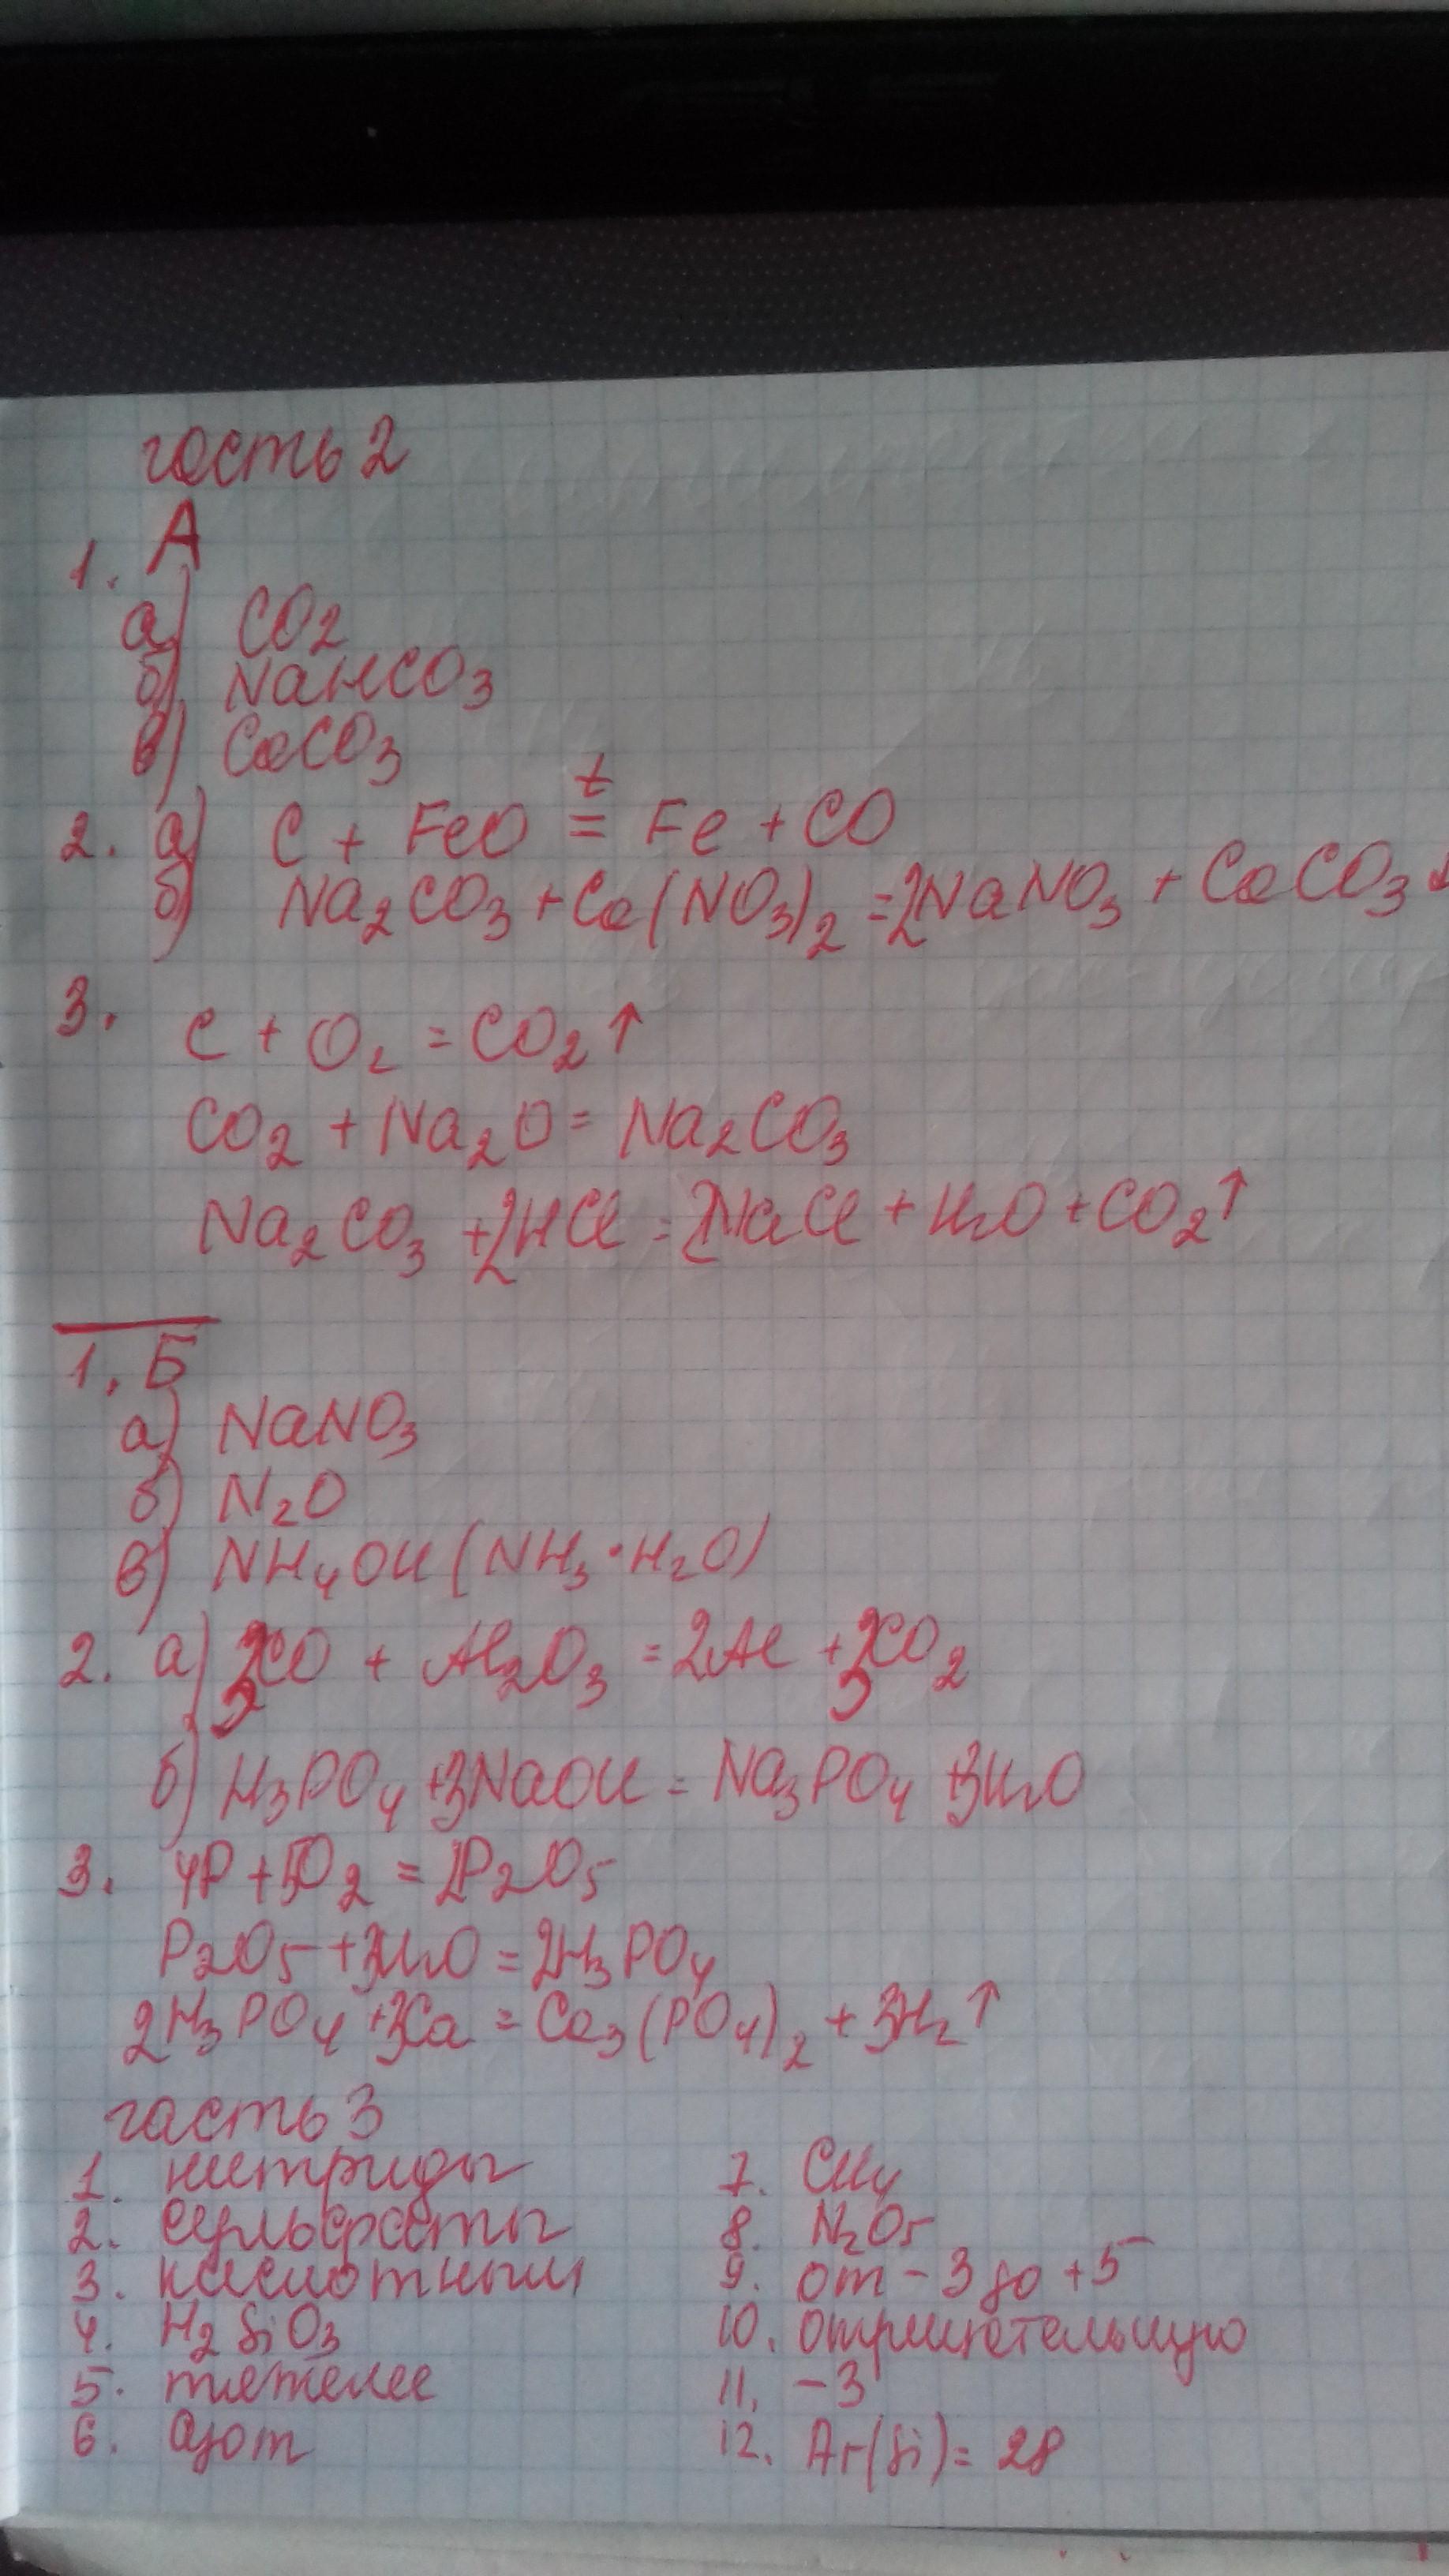 часть 2
1. А
а) CO2
б) NaHCO3
в) CaCO3
2. а) C + FeO t= Fe + CO
б) Na2CO3 + Ca(NO3)2 = 2NaNO3 + CaCO3↓
3. C + O2 = CO2↑
CO2 + Na2O = Na2CO3
Na2CO3 + 2HCl = 2NaCl + H2O + CO2↑
1. Б
а) NaNO3
б) N2O
в) NH4OH (NH3·H2O)
2. а) 3CO + Al2O3 = 2Al + 3CO2
б) H3PO4 + 3NaOH = Na3PO4 + 3H2O
3. 4P + 5O2 = 2P2O5
P2O5 + 3H2O = 2H3PO4
2H3PO4 + 3Ca = Ca3(PO4)2 + 3H2↑
часть 3
1. нитриды
2. сульфаты
3. кислотным
4. H2SiO3
5. тяжелее
6. азот
7. CH4
8. N2O5
9. от -3 до +5
10. отрицательную
11. -3
12. Ar(Si) = 28